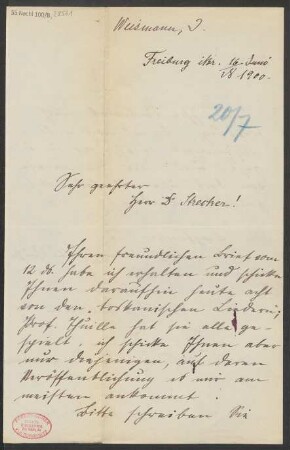 Weismann, J.
Freiburg i/Br. 16. Juni
1900.
20/7
Sehr geehrter
Herr Dr Strecker!
Ihren freundlichen Brief vom
12 ds. habe ich erhalten und schicke
Ihnen daraufhin heute acht
von den toskanischen Liedern;
Prof. Thuille hat sie alle ge-
spielt. ich schicke Ihnen aber
nur diejenigen, auf deren
Veröffentlichung es mir am
meisten ankommt.
Bitte schreiben Sie